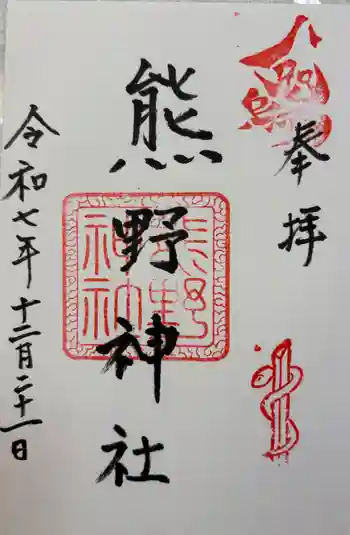 奉拝
熊野神社
熊野
神社
令和七年十二月二十一日